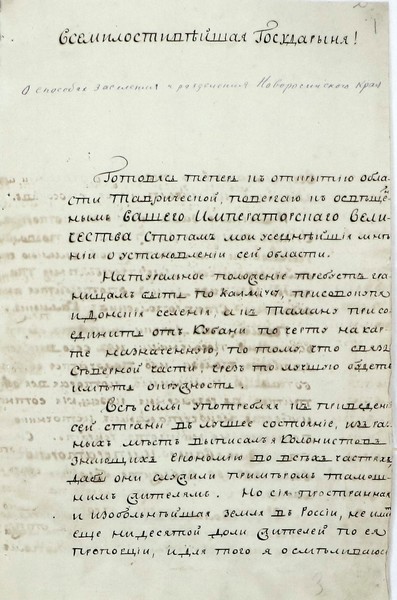 Всемилостивѣйшая Государыня!
О способах заселения и разделения Новороссийского края
Готовясь теперь къ открытію обла-
сти Таврической, повергаю къ освѣще-
нымъ вашего Императорскаго Вели-
чества Стопамъ мои усерднѣйшія мнѣ-
ніи о установленіи сей области.
Натуральное положеніе требуетъ гра-
ницамъ быть по Калміусъ, присовокупя
и Донскія селенія, а къ Таману присо-
единить отъ Кубани по черту на кар-
те назначенную, по тому, что связь
Сѣверной части, чрезъ то лучшую будетъ
имѣть окружность.
Всѣ силы употребляя къ приведенію
сей страны въ лучшее состояніе, изъ раз-
ныхъ мѣстъ выписалъ я Колонистовъ
знающихъ економію во всѣхъ частяхъ,
дабы они служили примѣромъ тамош-
нимъ жителямъ. Но сія пространная
и изобильнѣйшая земля въ Россіи, не имѣ
еще ни десятой доли жителей по ея
пропорціи, и для того я осмѣливаюс